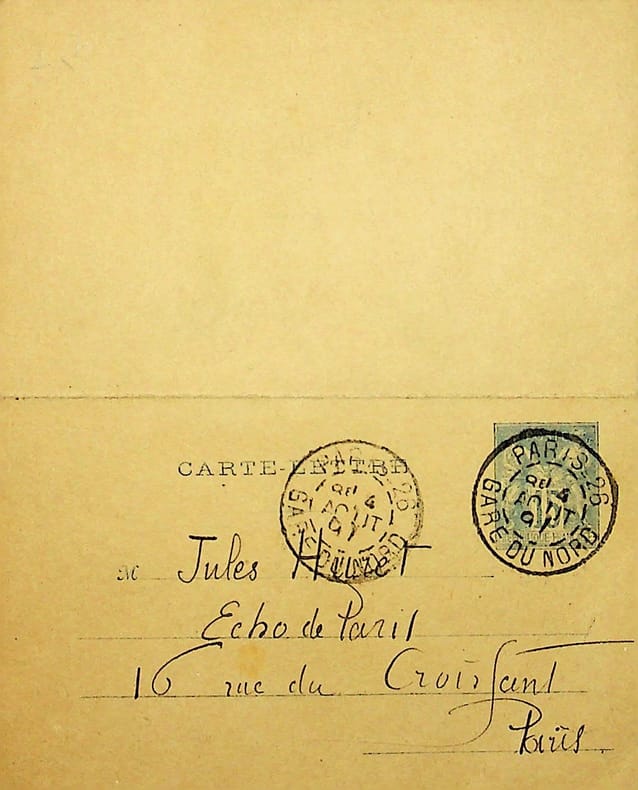 CARTE-LETTRE
PARIS-26
4
AOUT
91
GARE DU NORD
PARIS-26
4
AOUT
91
GARE DU NORD
M Jules Huret
Echo de Paris
16 rue du Croissant
Paris